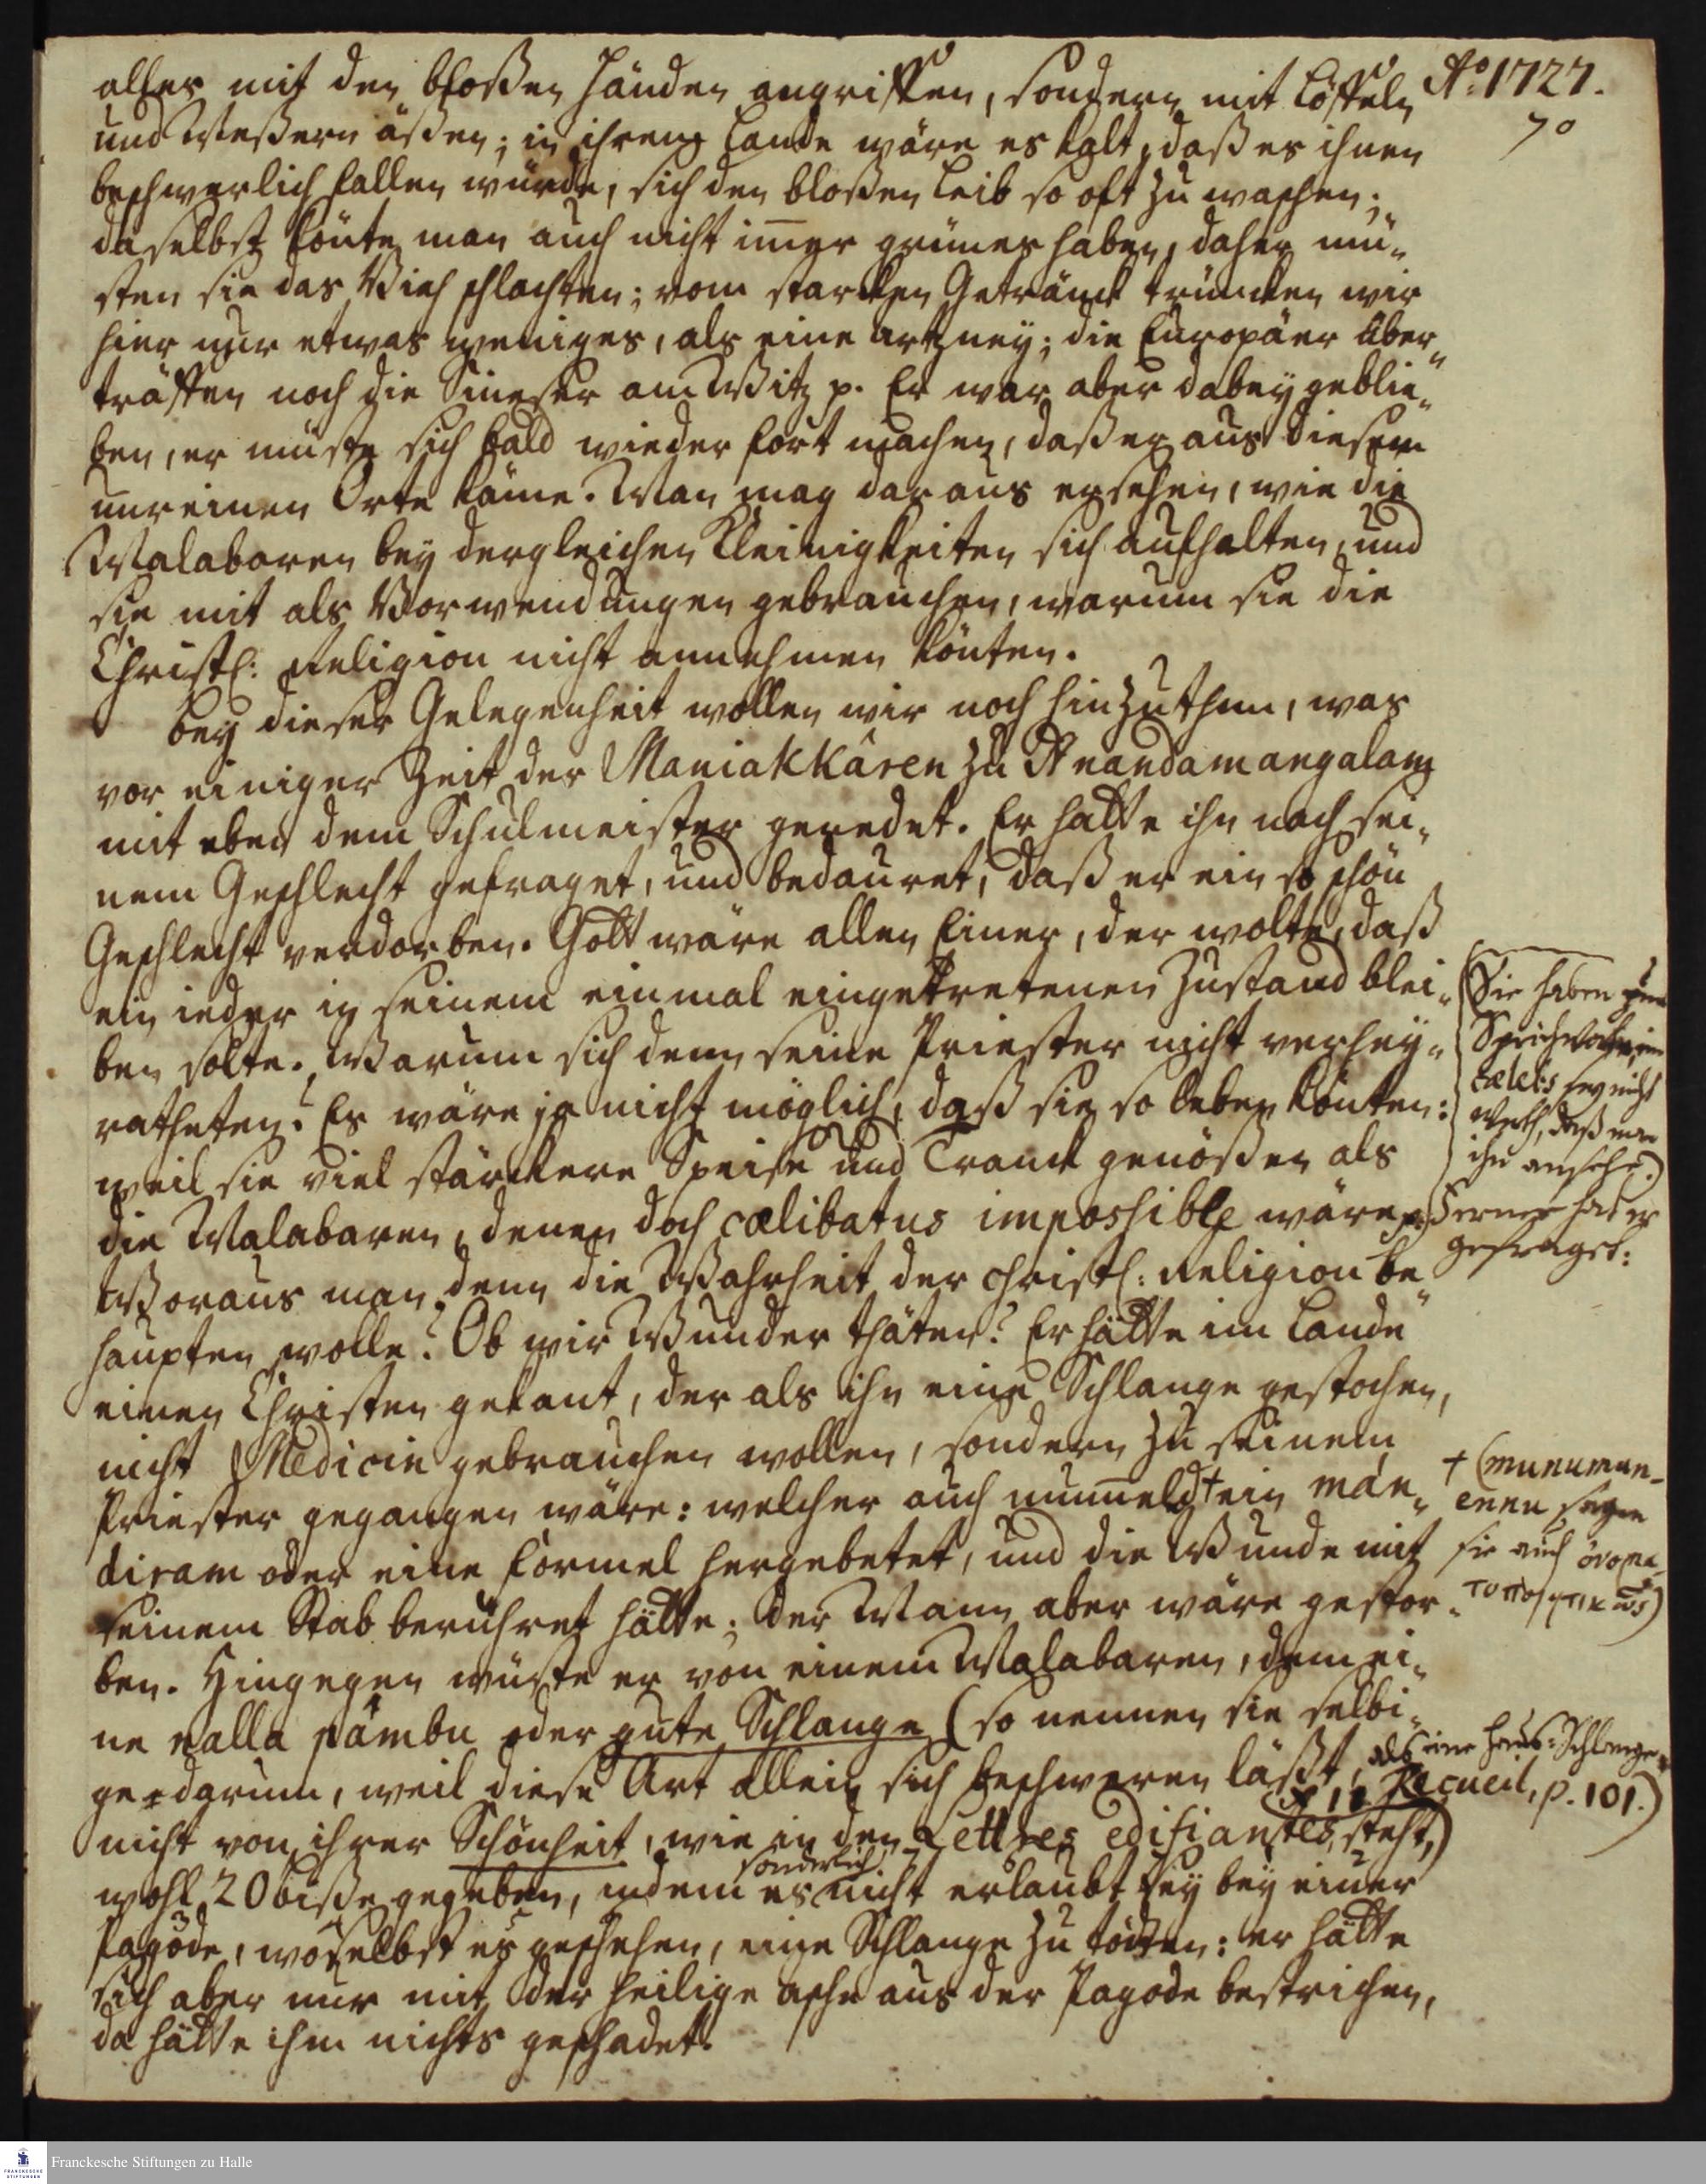 Aō 1727.
70
alles mit den bloßen Händen angriffen, sondern mit Löffeln
und Meßern äßen; in ihrem Lande wäre es kalt, daß es ihnen
beschwerlich fallen würde, sich den bloßen Leib so oft zu waschen;
daselbst könte man auch nicht im̄er grünes haben, daher mü-
sten sie das Vieh schlachten; vom starcken Getränck trüncken wir
hier nur etwas weniges, als eine Artzney; die Europäer über-
träffen noch die Sineser am Witz p. Er war aber dabey geblie-
ben, er müste sich bald wieder fort machen, daß er aus diesem
unreinen Orte käme. Man mag daraus ersehen, wie die
Malabaren bey dergleichen Kleinigkeiten sich aufhalten, und
sie mit als Vorwendungen gebrauchen, warum sie die
Christl: Religion nicht annehmen könten.
Bey dieser Gelegenheit wollen wir noch hinzuthun, was
vor einiger Zeit der Maniakkâren zu Anandamangalam
mit eben dem Schulmeister geredet. Er hatte ihn nach sei-
nem Geschlecht gefraget, und bedauret, daß er ein so schön
Geschlecht verdorben. Gott wäre allen Einer, der wolte, daß
ein ieder in seinem einmal eingetretenen Zustand blei-
ben solte. Warum sich denn seine Priester nicht verhey-
ratheten? Es wäre ja nicht möglich, daß sie so leben könten:
weil sie viel stärckere Speise und Tranck genößen als
die Malabaren, denen doch cælibatus impossible wäre p.
(Sie haben zum
Sprichwort, ein
cælebs sey nicht
werth, daß man
ihn ansehe.)
Ferner hat er
gefraget:
Woraus man denn die Wahrheit der Christl: Religion be-
haupten wolle? Ob wir Wunder thäten? Er hätte im Lande
einen Christen gekant, der als ihn eine Schlange gestochen,
nicht Medicin gebrauchen wollen, sondern zu seinem
Priester gegangen wäre: welcher auch mum̄eld † ein mán-
diram oder eine Formel hergebetet, und die Wunde mit
seinem Stab berühret hätte; der Mann aber wäre gestor-
† (munumun-
ennu sagen
sie auch ὀνομα-
τοποιητικῶς)
ben. Hingegen wüste er von einem Malabaren, dem ei-
ne nalla pâmbu oder gute Schlange (so nennen sie selbi-
ge darum, weil diese Art allein sich beschweren läßt, als eine Haus-Schlange
nicht von ihrer Schönheit, wie in den Lettres edifiantes, steht,)
Recueil, p. 101.)
wohl 20 biße gegeben, indem es sonderlich nicht erlaubt sey bey einer
Pagode, woselbst es geschehen, eine Schlange zu tödten: er hätte
sich aber nur mit der heilige asche aus der Pagode bestrichen,
da hätte ihm nichts geschadet.
Franckesche Stiftungen zu Halle